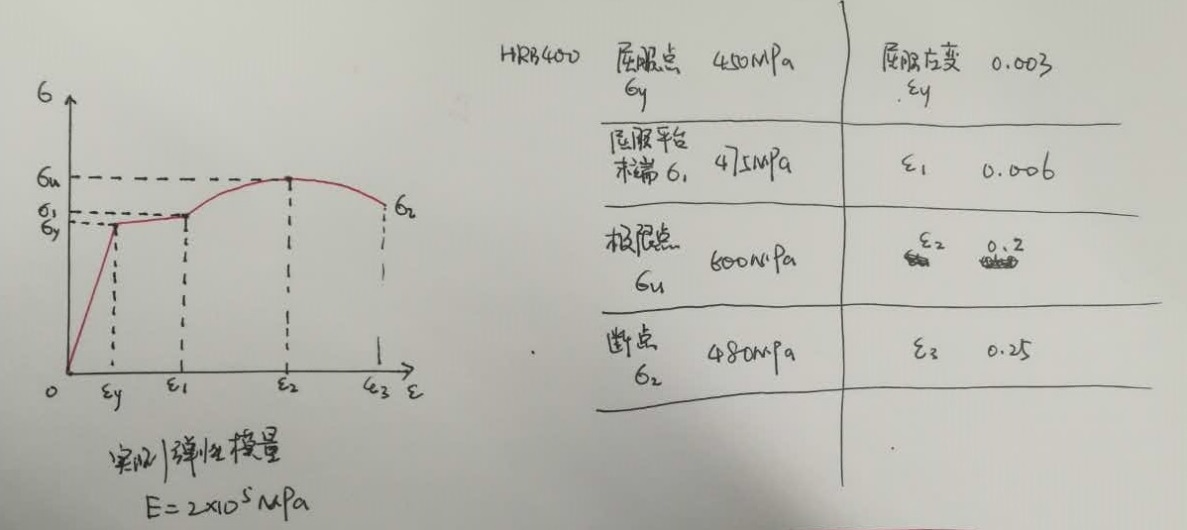 σ
σu
σ1
σy
σ2
0
εy
ε1
ε2
ε3
ε
实际弹性模量
E=2×10⁵MPa
HRB400 屈服点 450MPa 屈服应变 0.003
σy εy
屈服平台
末端 σ1 475MPa ε1 0.006
极限点 600MPa ε2 0.2
σu
断点 480MPa ε3 0.25
σ2